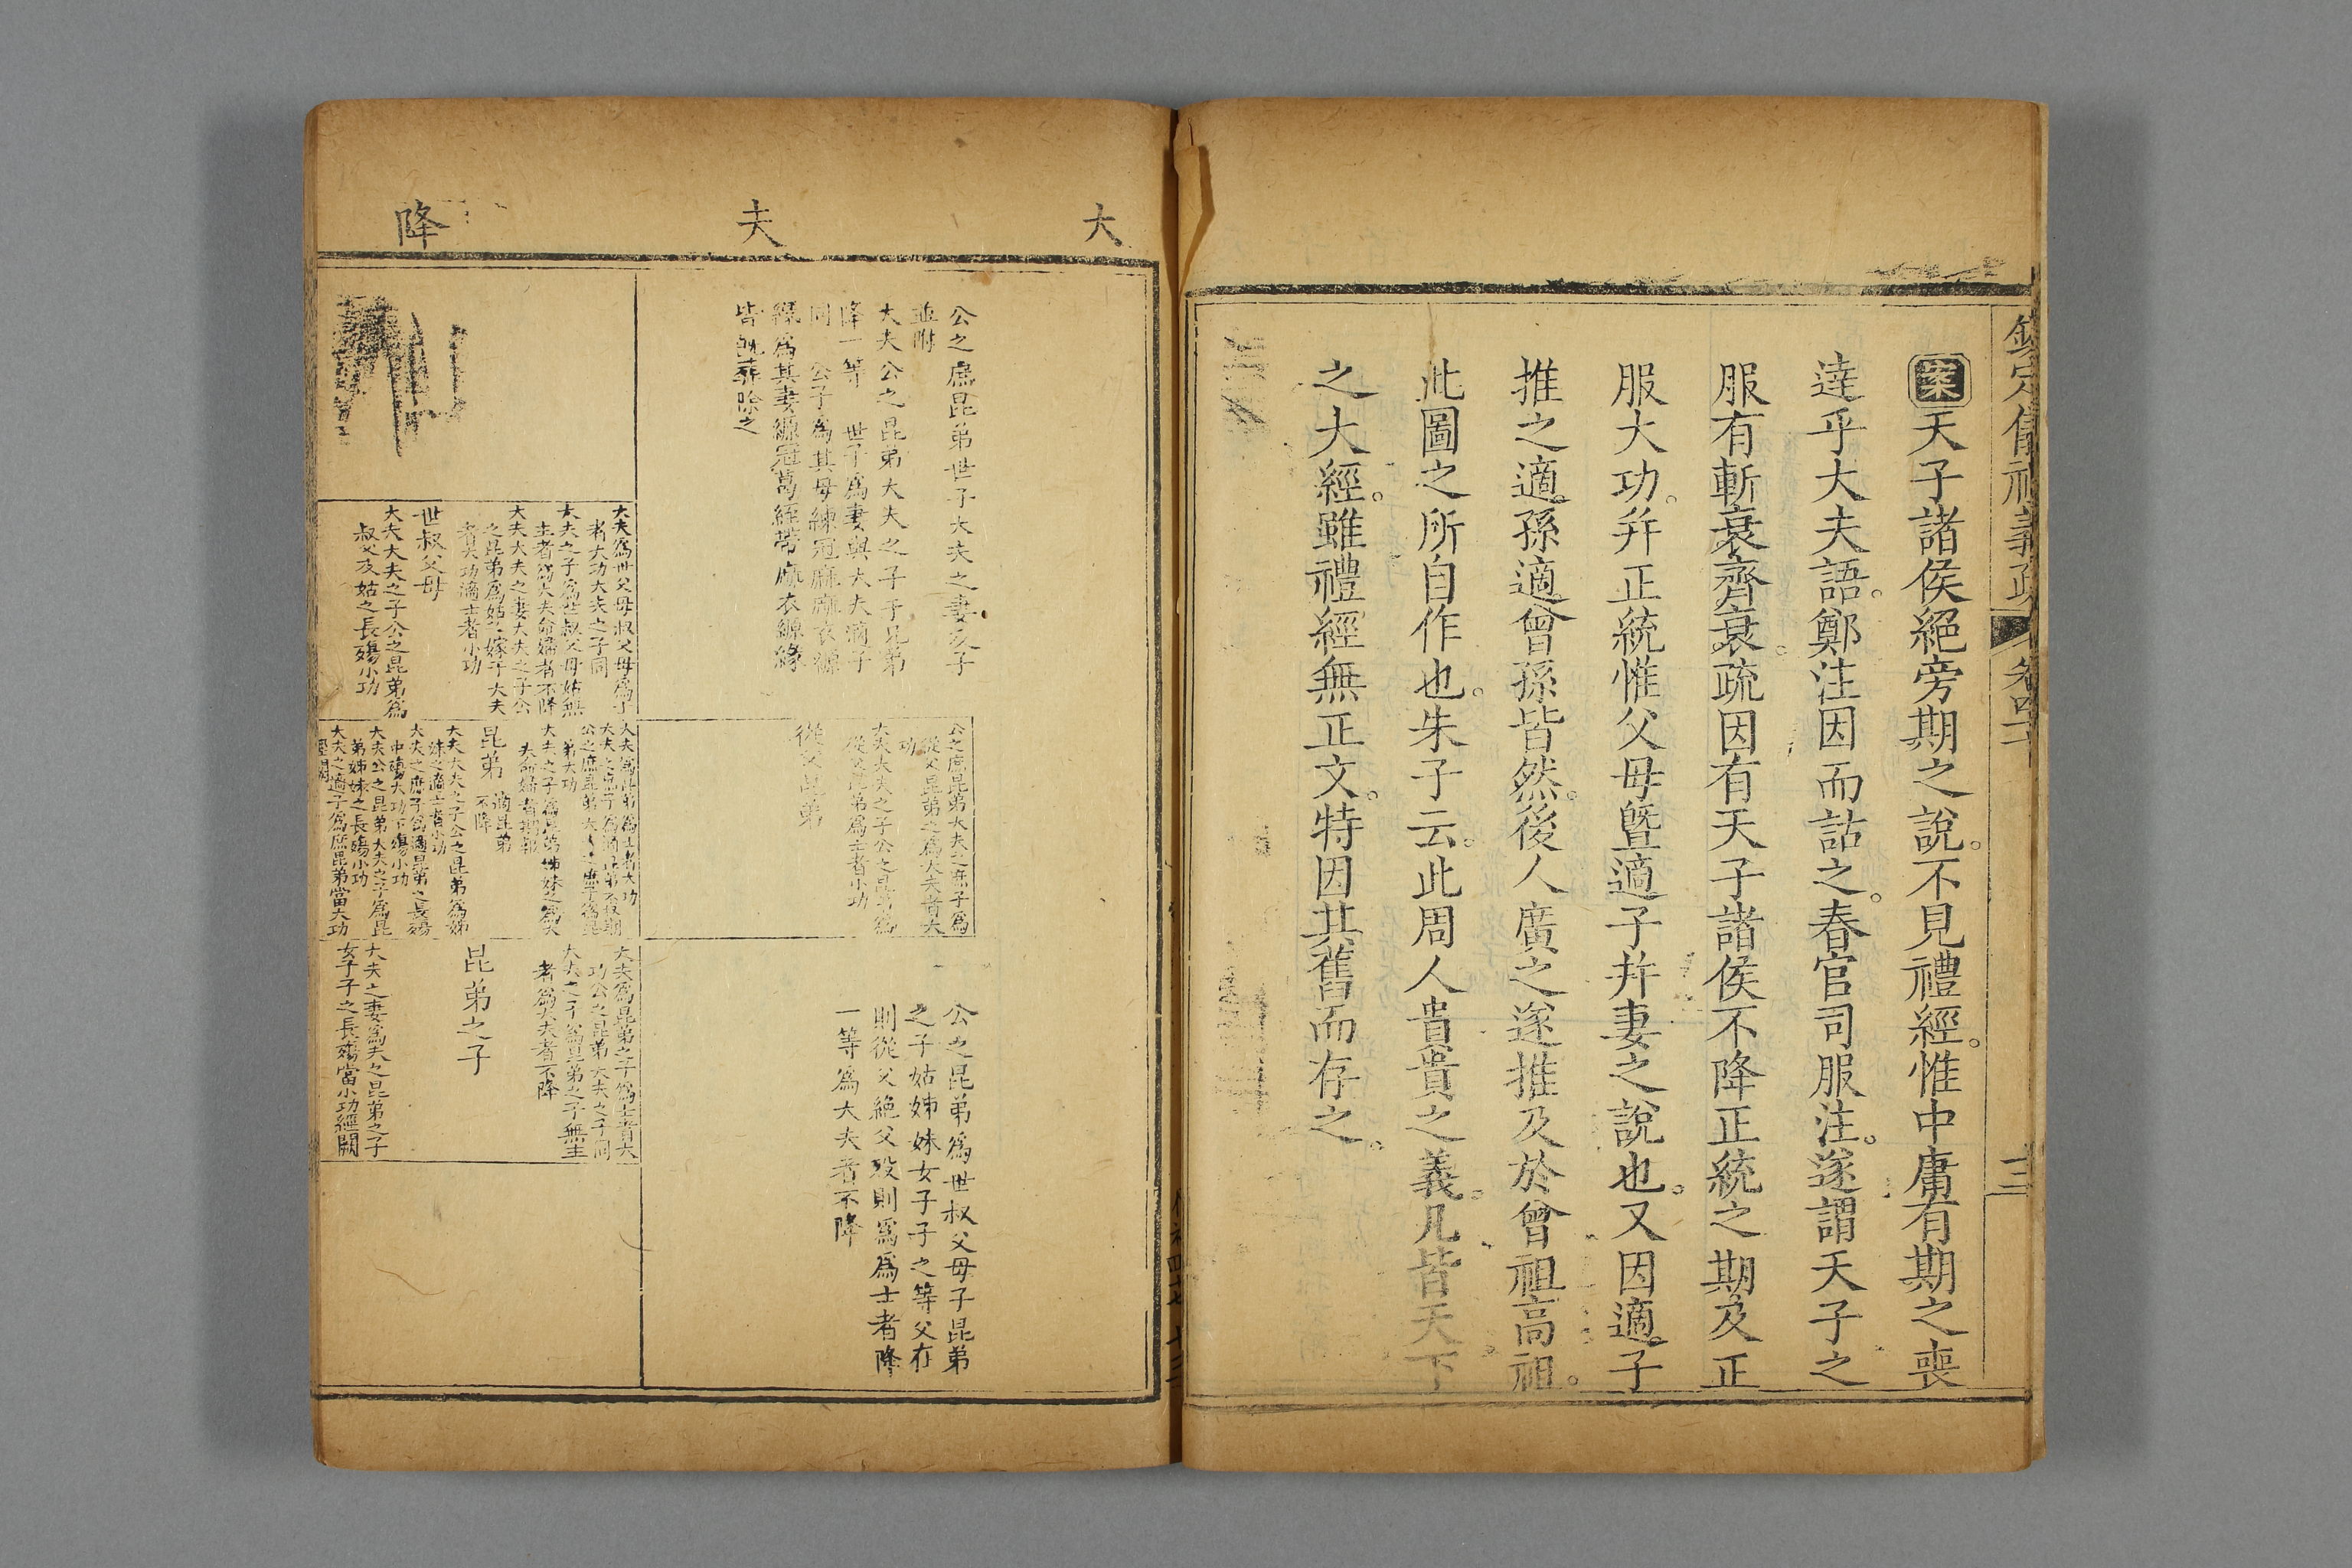 欽定儀禮義疏
卷四十
三
案天子諸侯絕旁期之說。不見禮經。惟中庸有期之喪
達乎大夫語。鄭注因而詁之。春官司服注。遂謂天子之
服有斬衰齊衰。疏因有天子諸侯不降正統之期及正
服大功。幷正統惟父母曁適子幷妻之說也。又因適子
推之適孫適曾孫皆然。後人廣之遂推及於曾祖高祖。
此圖之所自作也。朱子云。此周人貴貴之義。凡皆天下
之大經。雖禮經無正文。特因其舊而存之。
大夫降
公之庶昆弟世子大夫之妻及子
並附
大夫公之昆弟大夫之子于兄弟
降一等 世子爲妻與大夫適子
同 公子爲其母練冠麻麻衣縓
緣爲其妻縓冠葛絰帶麻衣縓緣
皆旣葬除之
公之庶昆弟大夫之庶子爲
從父昆弟之爲大夫者大
功
大夫大夫之子公之昆弟爲
從父昆弟爲士者小功
從父昆弟
公之昆弟爲世叔父母子昆弟
之子姑姊妹女子子之等父在
則從父絶父歿則爲爲士者降
一等爲大夫者不降
大夫爲世父母叔父母爲士
者大功大夫之子同
大夫之子爲世叔父母姑無
主者爲大夫命婦者不降
大夫大夫之妻大夫之子公
之昆弟爲姑嫁于大夫
者大功適士者小功
世叔父母
大夫大夫之子公之昆弟爲
叔父及姑之長殤小功
大夫爲昆弟爲士者大功
弟大功
大夫之子爲昆弟姊妹之爲大
夫命婦者期
昆弟 適昆弟不降
大夫大夫之子公之昆弟爲姊
妹之適士者小功
大夫之庶子爲適昆弟之長殤
中殤大功下殤小功
大夫公之昆弟大夫之子爲昆
弟姊妹之長殤小功
大夫之適子爲庶昆弟當大功
經闕
大夫爲昆弟之子爲士者大
功公之昆弟大夫之子同
大夫之子爲昆弟之子無主
者爲大夫者不降
昆弟之子
大夫之妻爲夫之昆弟之子
女子子之長殤當小功經闕